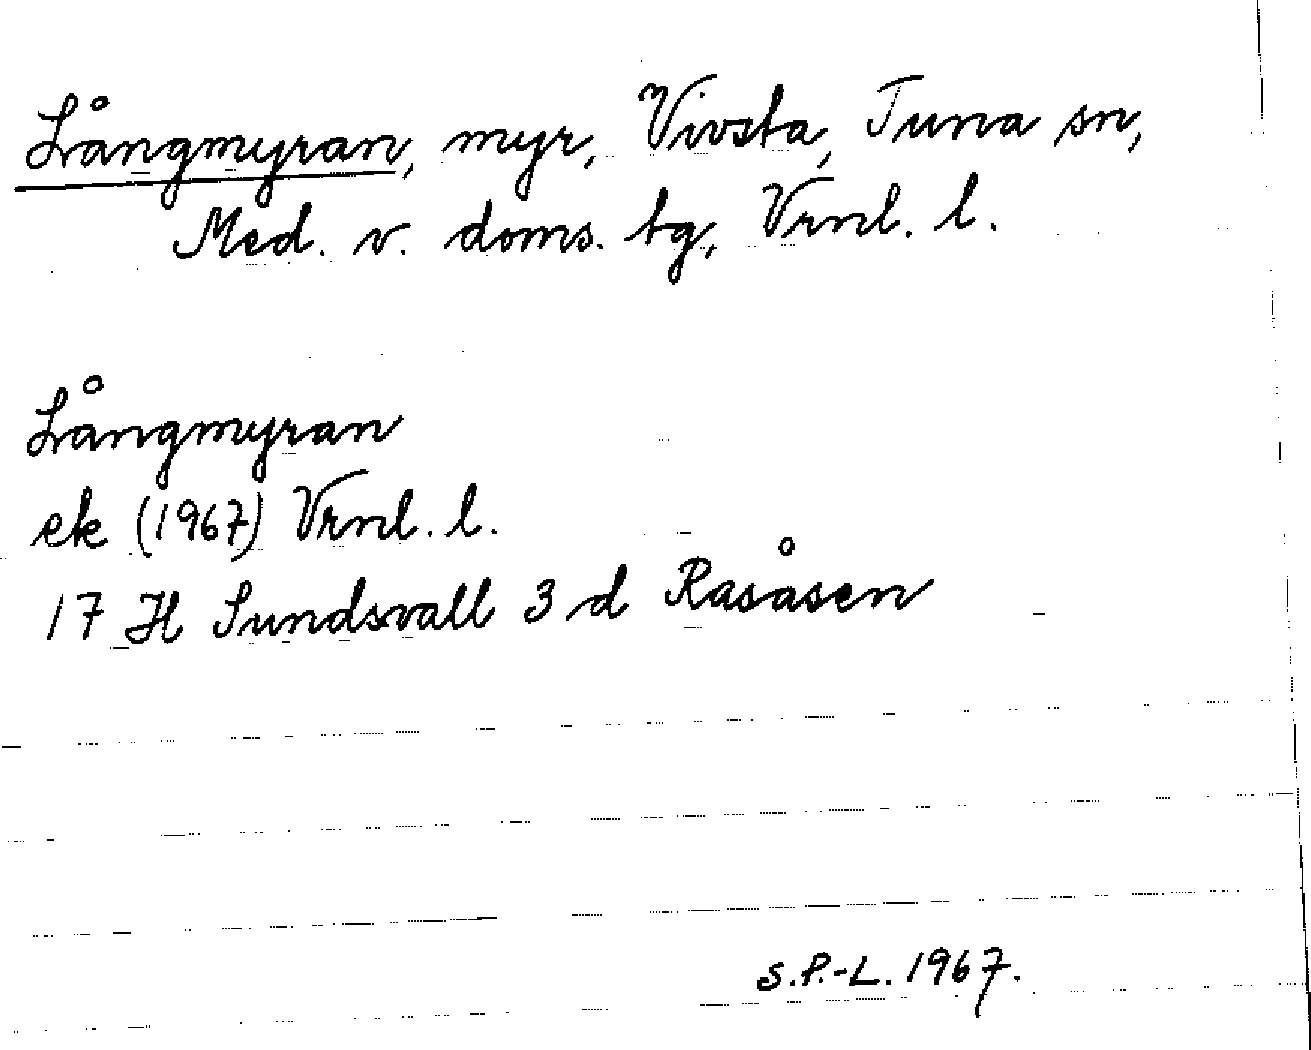 Långmyran, myr, Vivsta, Tuna sn,
Med. v. doms. tg, Vrnl. l.
Långmyran
ek (1967) Vrnl. l.
17 H Sundsvall 3 d Rasåsen
S.P.-L. 1967.